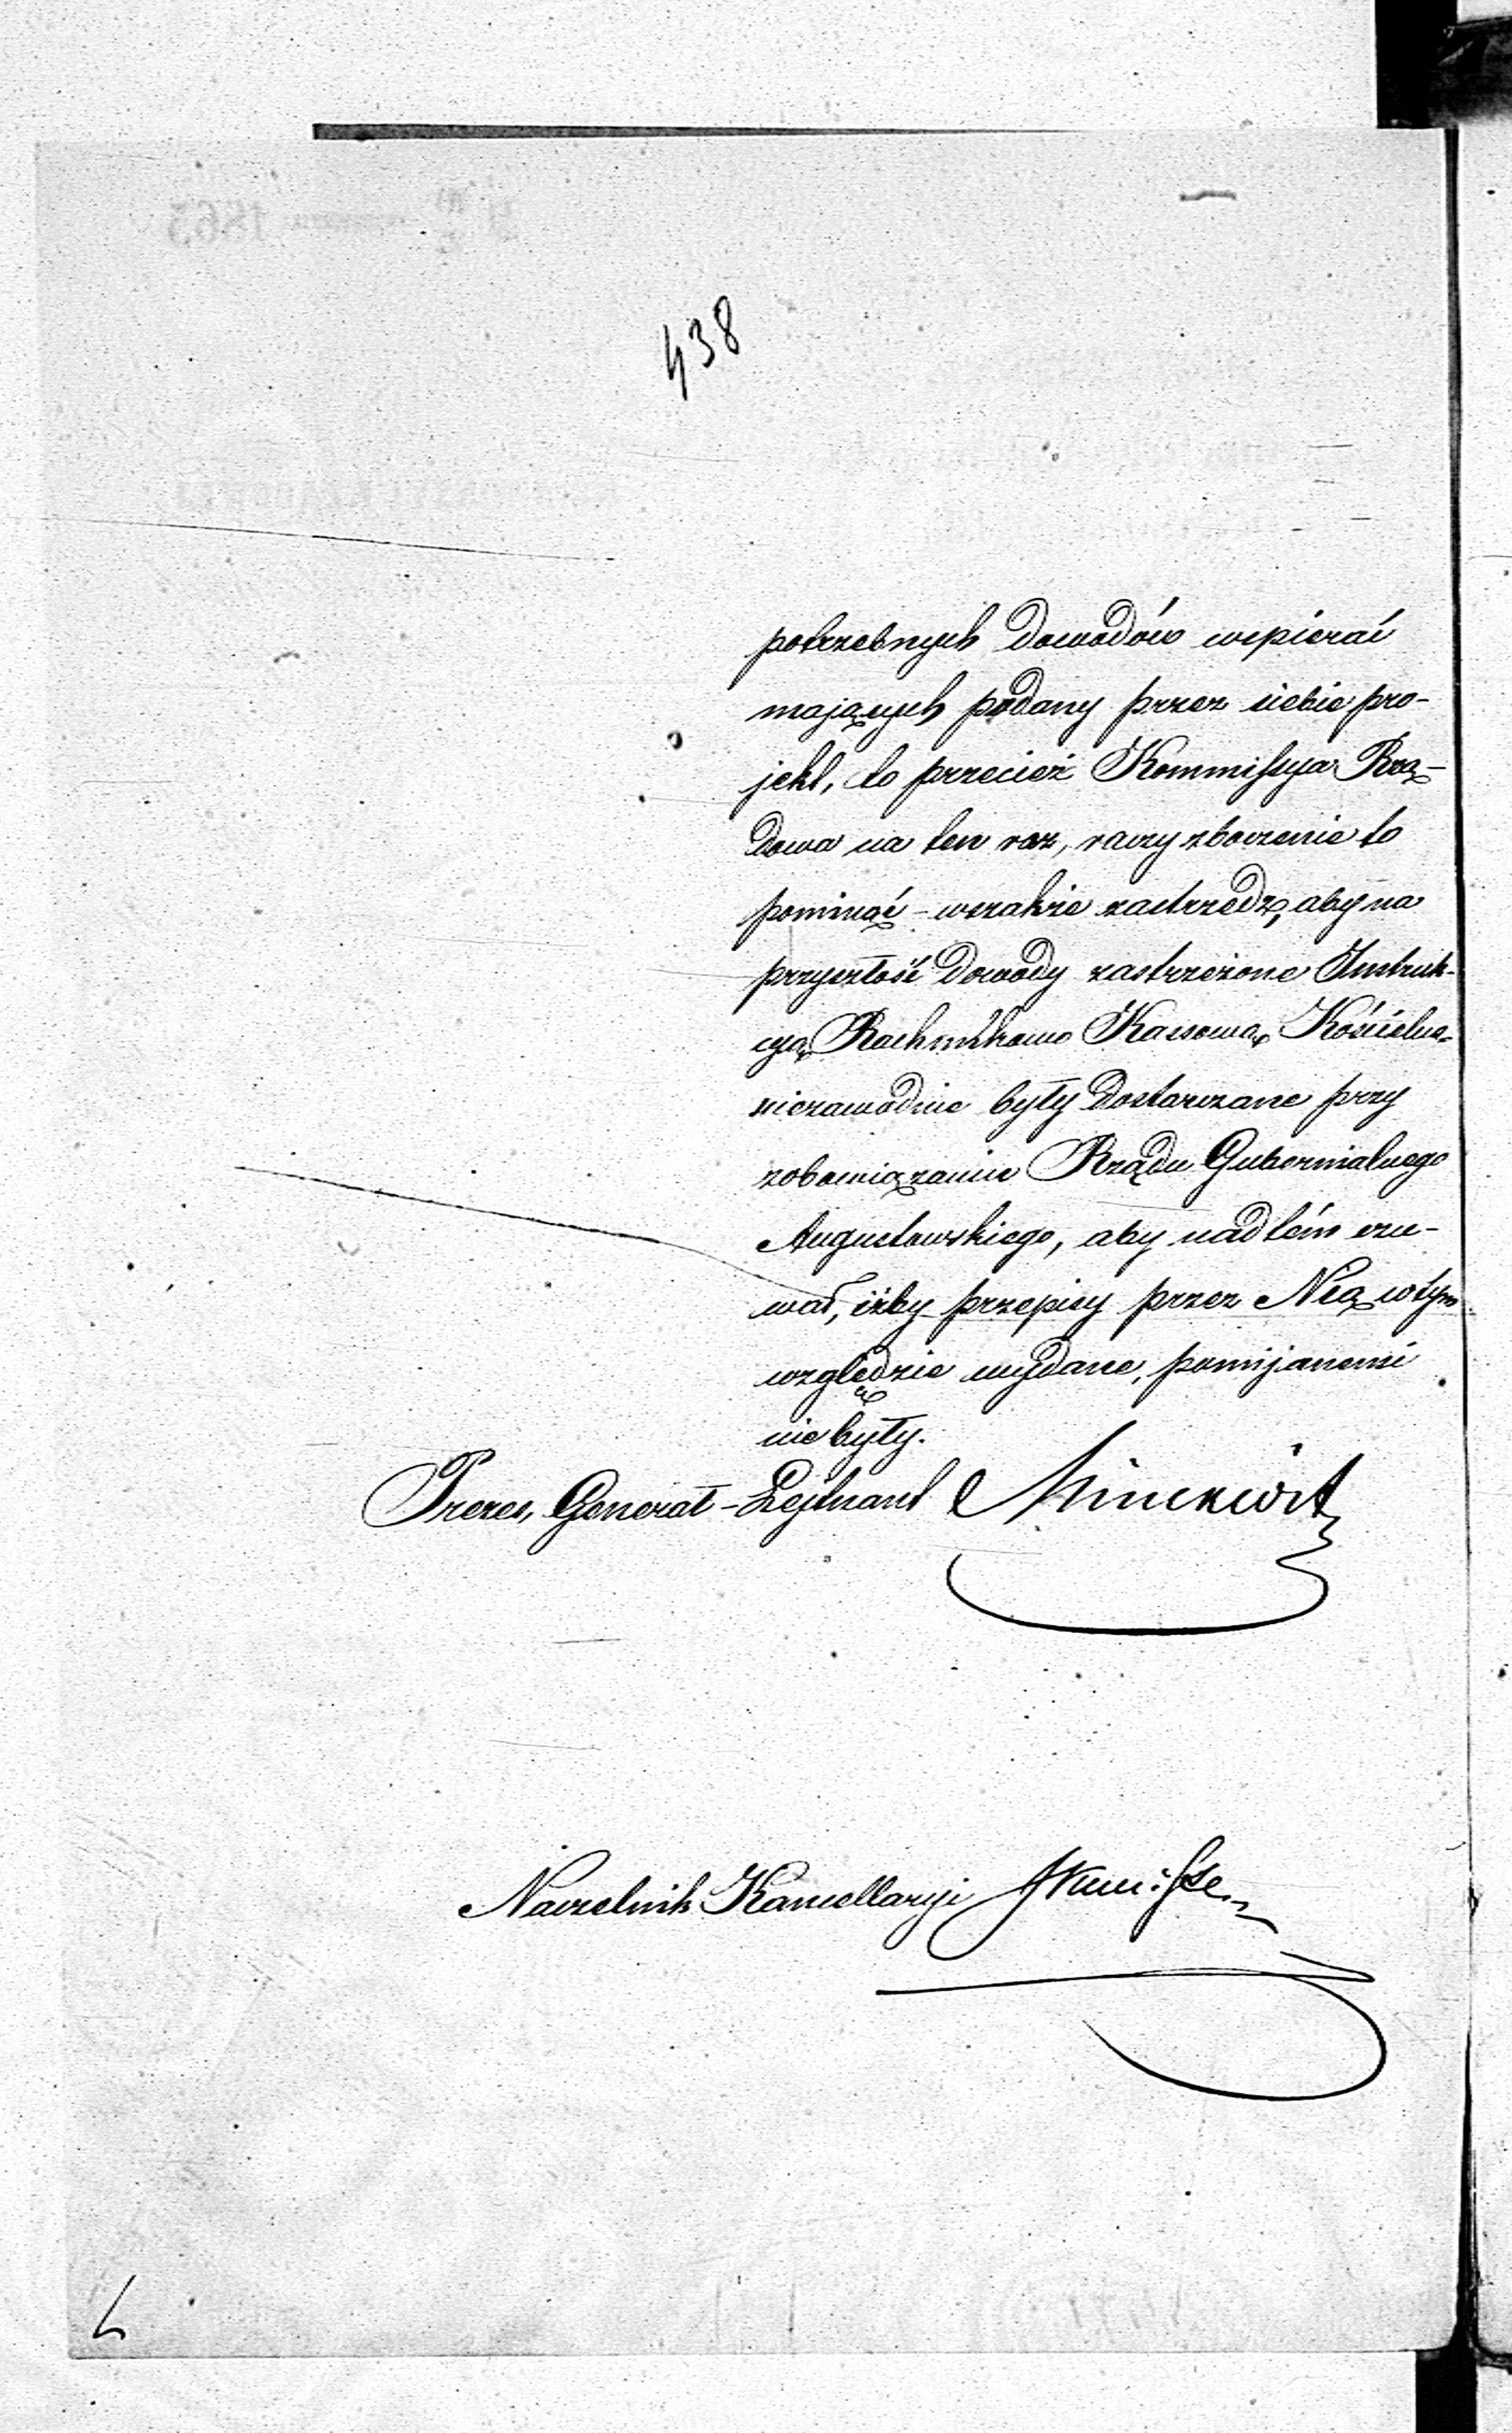 438
potrzebnych dowodów wspierać
mających podany przez siebie pro-
jekt, to przecież Kommissya Rzą-
dowa na ten raz, raczy zboczenie to
pominąć - wszakże zastrzedz, aby na
przyszłość dowody zastrzeżone Instruk-
cyą Rachunkowo Kassową Kościelną
niezawodnie były dostarczane przy
zobowiązaniu Rządu Gubernialnego
Augustowskiego, aby nad tém czu-
wał, iżby przepisy przez Nią w tym
względzie wydane, pomijanemi
nie były.
Prezes, Generał-Lejtnant Minckwitz
Naczelnik Kancellaryi